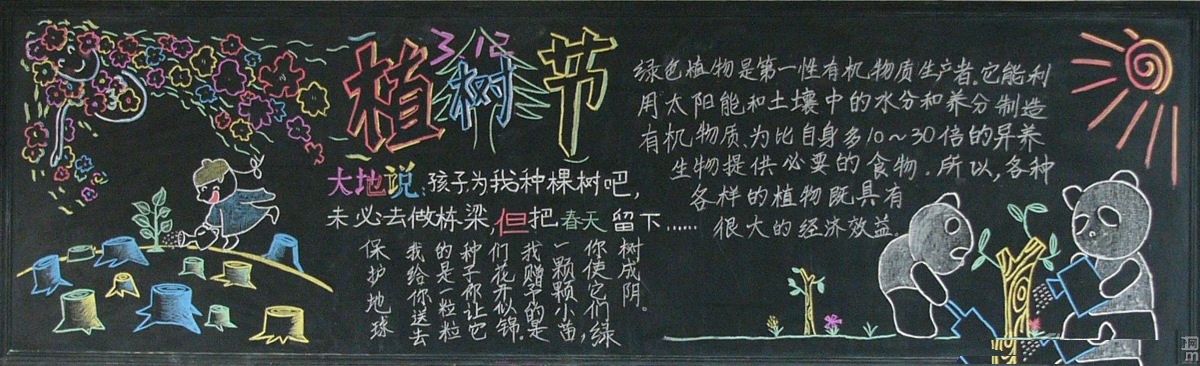 3.12
植树节
大地说:孩子为我种棵树吧,
未必去做栋梁,但把春天留下……
保护地球
我给你送去
的是一粒粒
种子你让它
们花开似锦。
我赠予的是
一颗颗小苗,
你使它们绿
树成阴。
绿色植物是第一性有机物质生产者.它能利
用太阳能和土壤中的水分和养分制造
有机物质.为比自身多10~30倍的异养
生物提供必要的食物.所以,各种
各样的植物既具有
很大的经济效益.